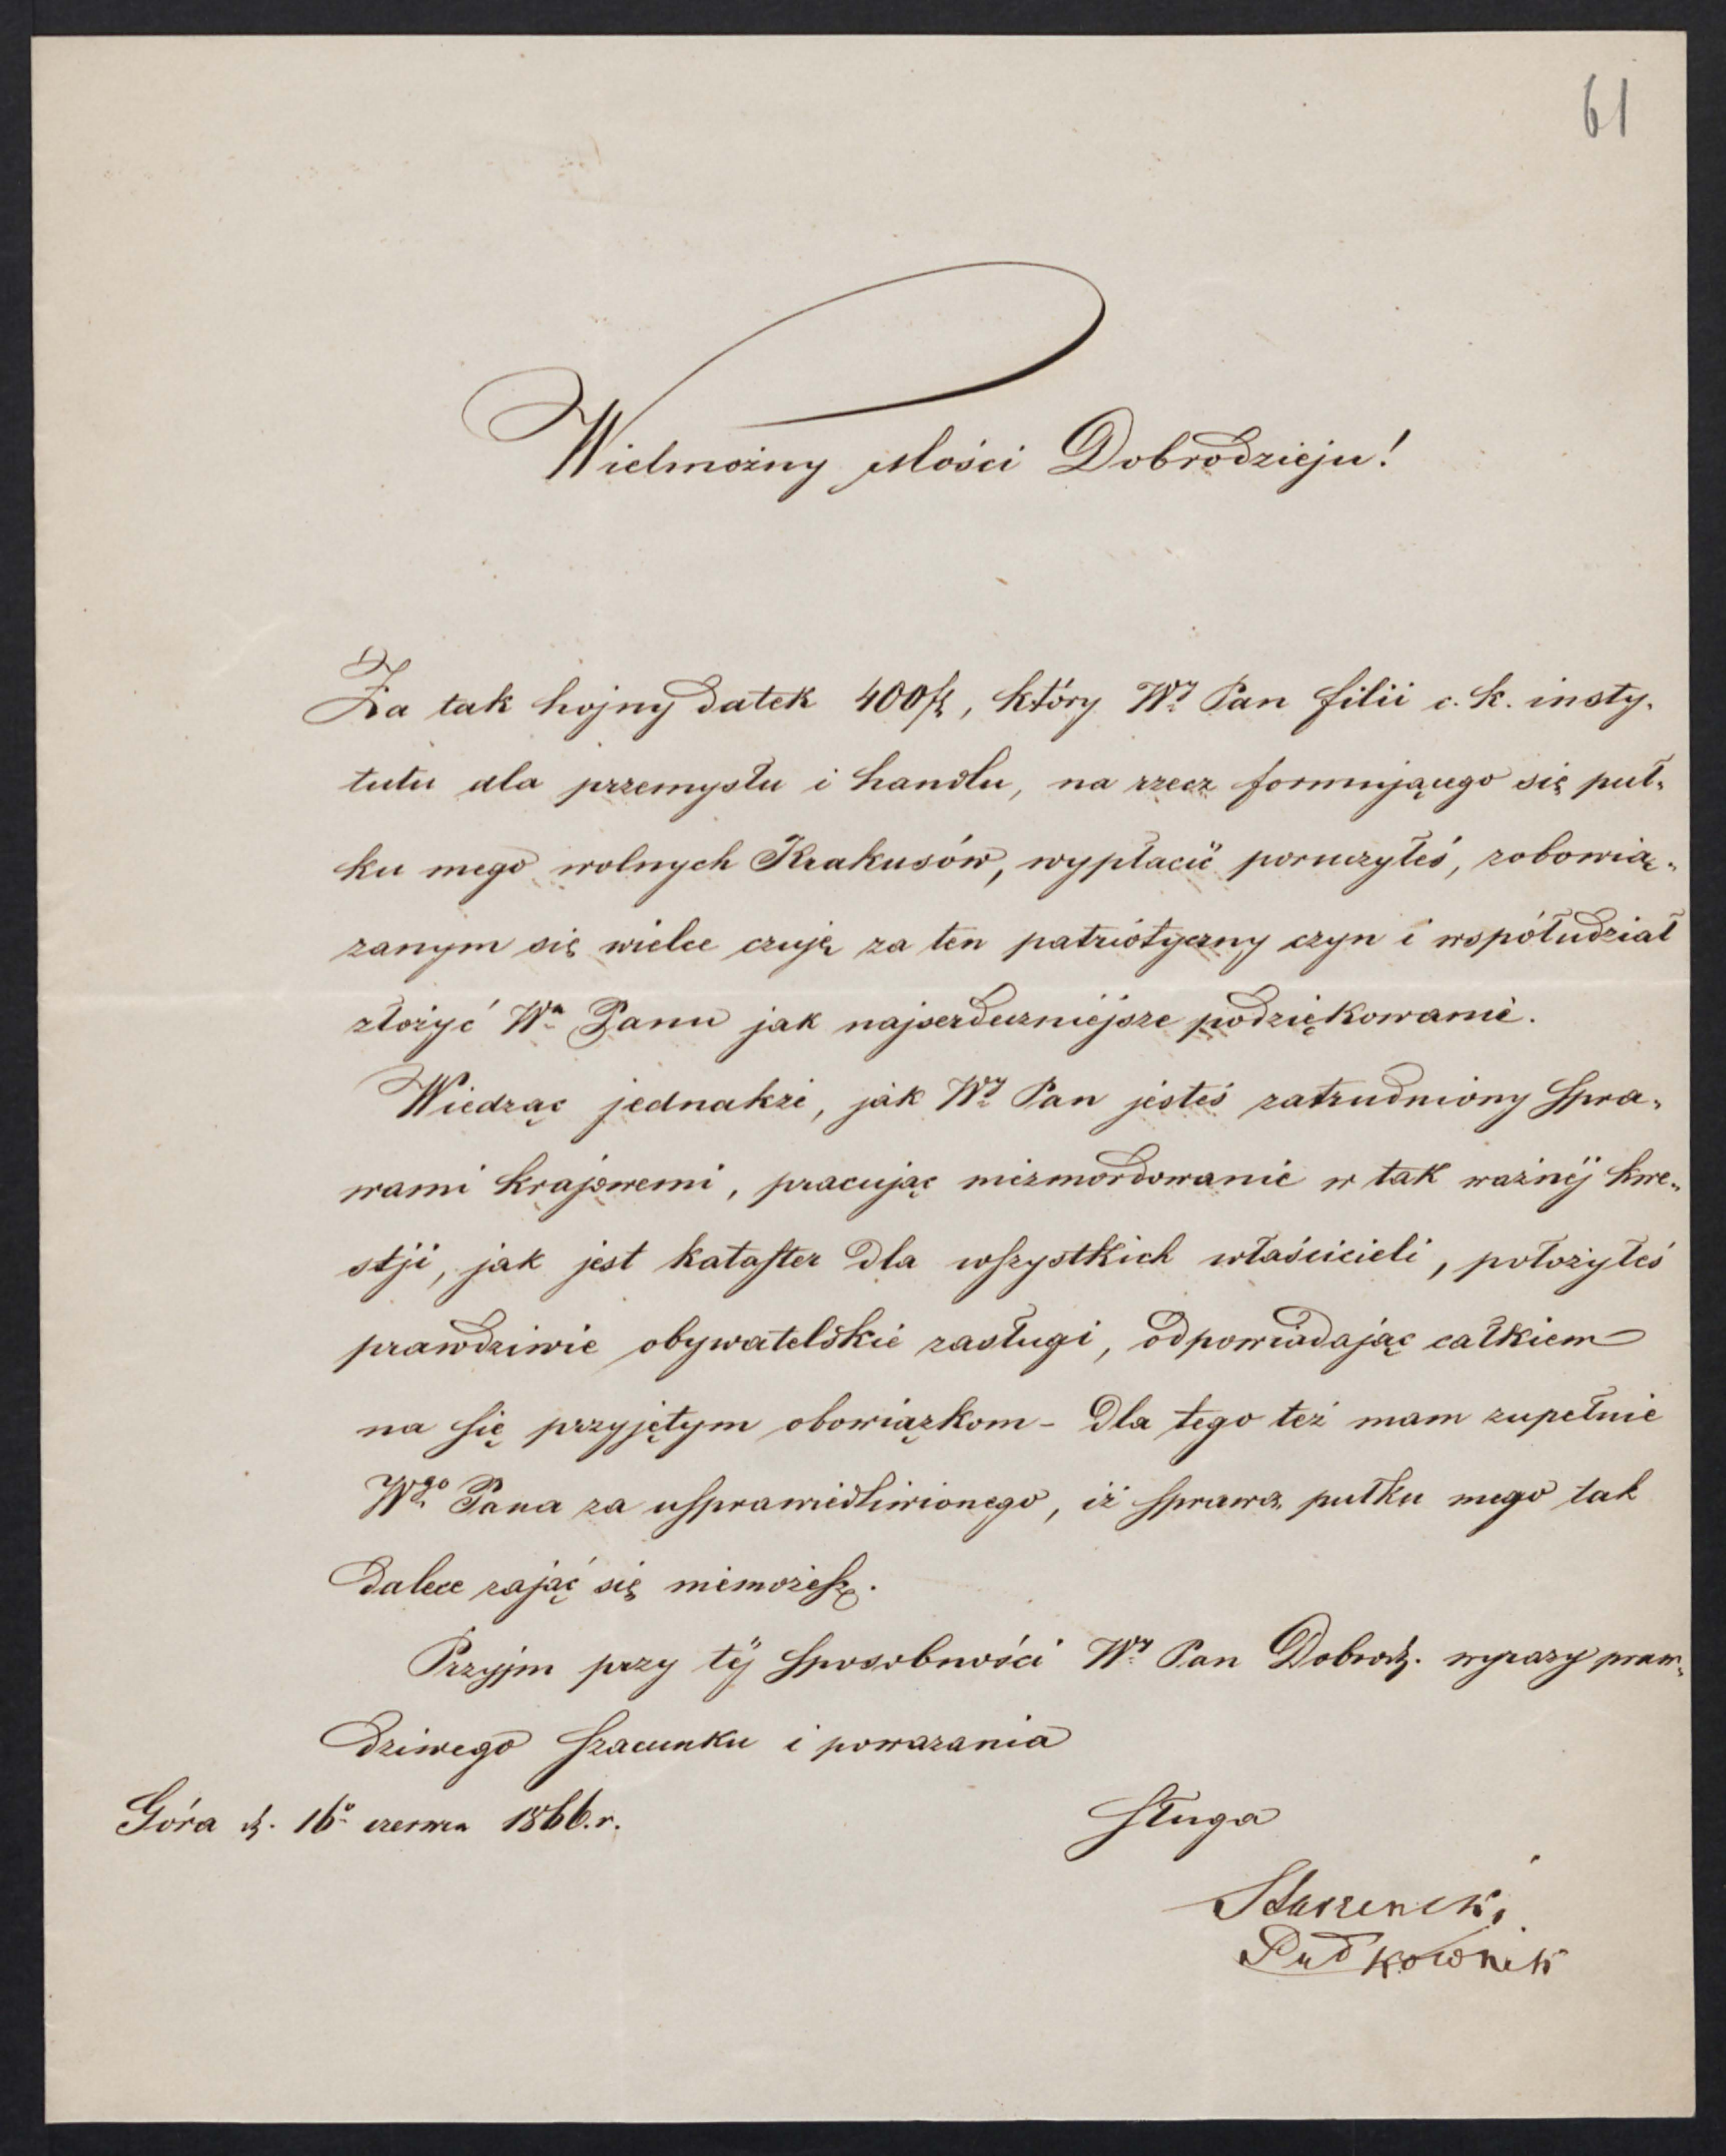 61
Wielmożny Mości Dobrodzieju!
Za tak hojny datek 400 fl, który Wy Pan filii c. k. insty-
tutu dla przemysłu i handlu, na rzecz formującego się puł-
ku mego wolnych Krakusów, wypłacić poruczyłeś, zobowią-
zanym się wielce czuję za ten patriotyczny czyn i współudział
złożyć Wu Panu jak najserdeczniejsze podziękowanie.
Wiedząc jednakże, jak Wy Pan jesteś zatrudniony spra-
wami krajowemi, pracując niezmordowanie w tak ważnéj kwe-
stji, jak jest kataster dla wszystkich właścicieli, położyłeś
prawdziwie obywatelskie zasługi, odpowiadając całkiem
na się przyjętym obowiązkom - dla tego też mam zupełnie
Wgo Pana za usprawiedliwionego, iż sprawą pułku mego tak
dalece zająć się niemożesz.
Przyjm przy téj sposobności Wy Pan Dobrodz. wyrazy praw-
dziwego szacunku i poważania
Góra d. 16o czerwca 1866.r.
sługa
Starzenski
Pułkownik